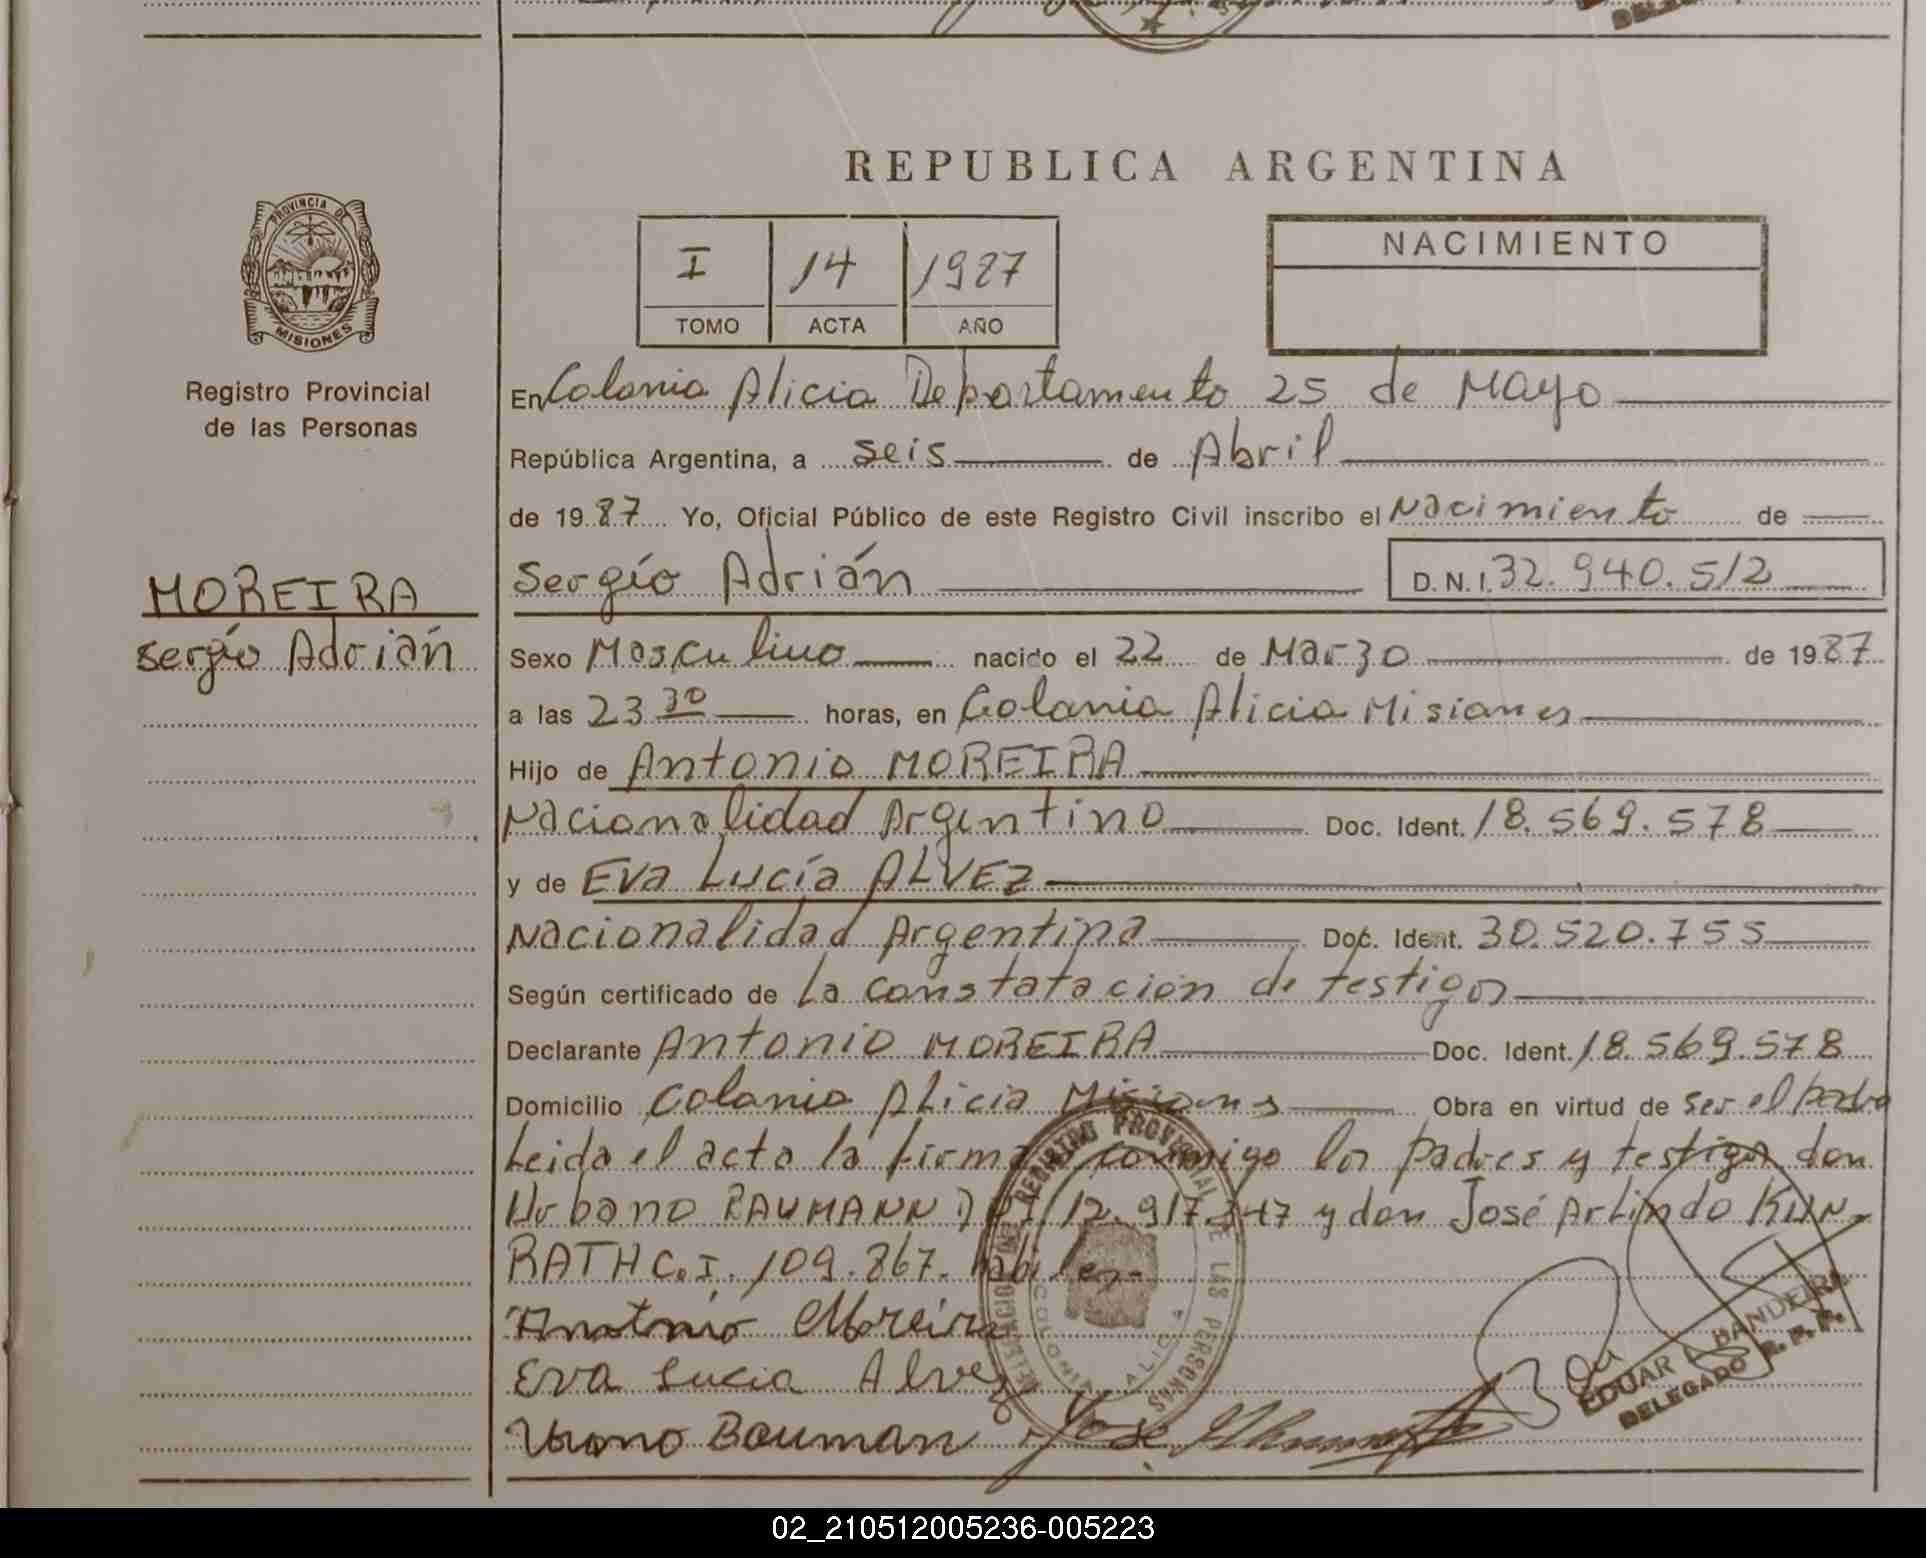 REPUBLICA ARGENTINA
PROVINCIA DE MISIONES
Registro Provincial
de las Personas
I 14 1987
TOMO ACTA AÑO
NACIMIENTO
En Colonia Alicia Departamento 25 de Mayo
República Argentina, a seis de Abril
de 1987 Yo, Oficial Público de este Registro Civil inscribo el Nacimiento de
MOREIRA
Sergio Adrián
Sergio Adrián D.N.I. 32.940.512
Sexo Masculino nacido el 22 de Marzo de 1987
a las 23 30 horas, en Colonia Alicia Misiones
Hijo de Antonio MOREIRA
Nacionalidad Argentino Doc. Ident. 18.569.578
y de Eva Lucía ALVEZ
Nacionalidad Argentina Doc. Ident. 30.520.755
Según certificado de La constatación de testigos
Declarante Antonio MOREIRA Doc. Ident. 18.569.578
Domicilio Colonia Alicia Misiones Obra en virtud de ser el padre
Leida el acta la firman conmigo los padres y testigos don
Urbano BAUMANN DNI 12.917.247 y don José Arlindo KUN-
RATH C.I. 109.867. habiles-
Antonio Moreira
Eva Lucia Alvez
Urbano Bauman José
DELEGACION DEL REGISTRO PROVINCIAL DE LAS PERSONAS
COLONIA ALICIA
EDUAR BANDEIRA
DELEGADO R.P.P.
02_210512005236-005223